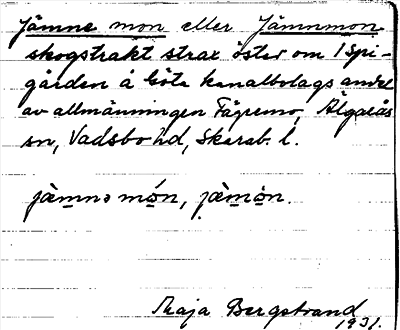 Jämne mon eller Jämnmon
skogstrakt strax öster om 1 Spi-
gården å Göta kanalbolags andel
av allmänningen Fägremo, Älgarås
sn, Vadsbo hd, Skarab. l.
jæ̀mnə món, jæ̀món.
Maja Bergstrand
1931.